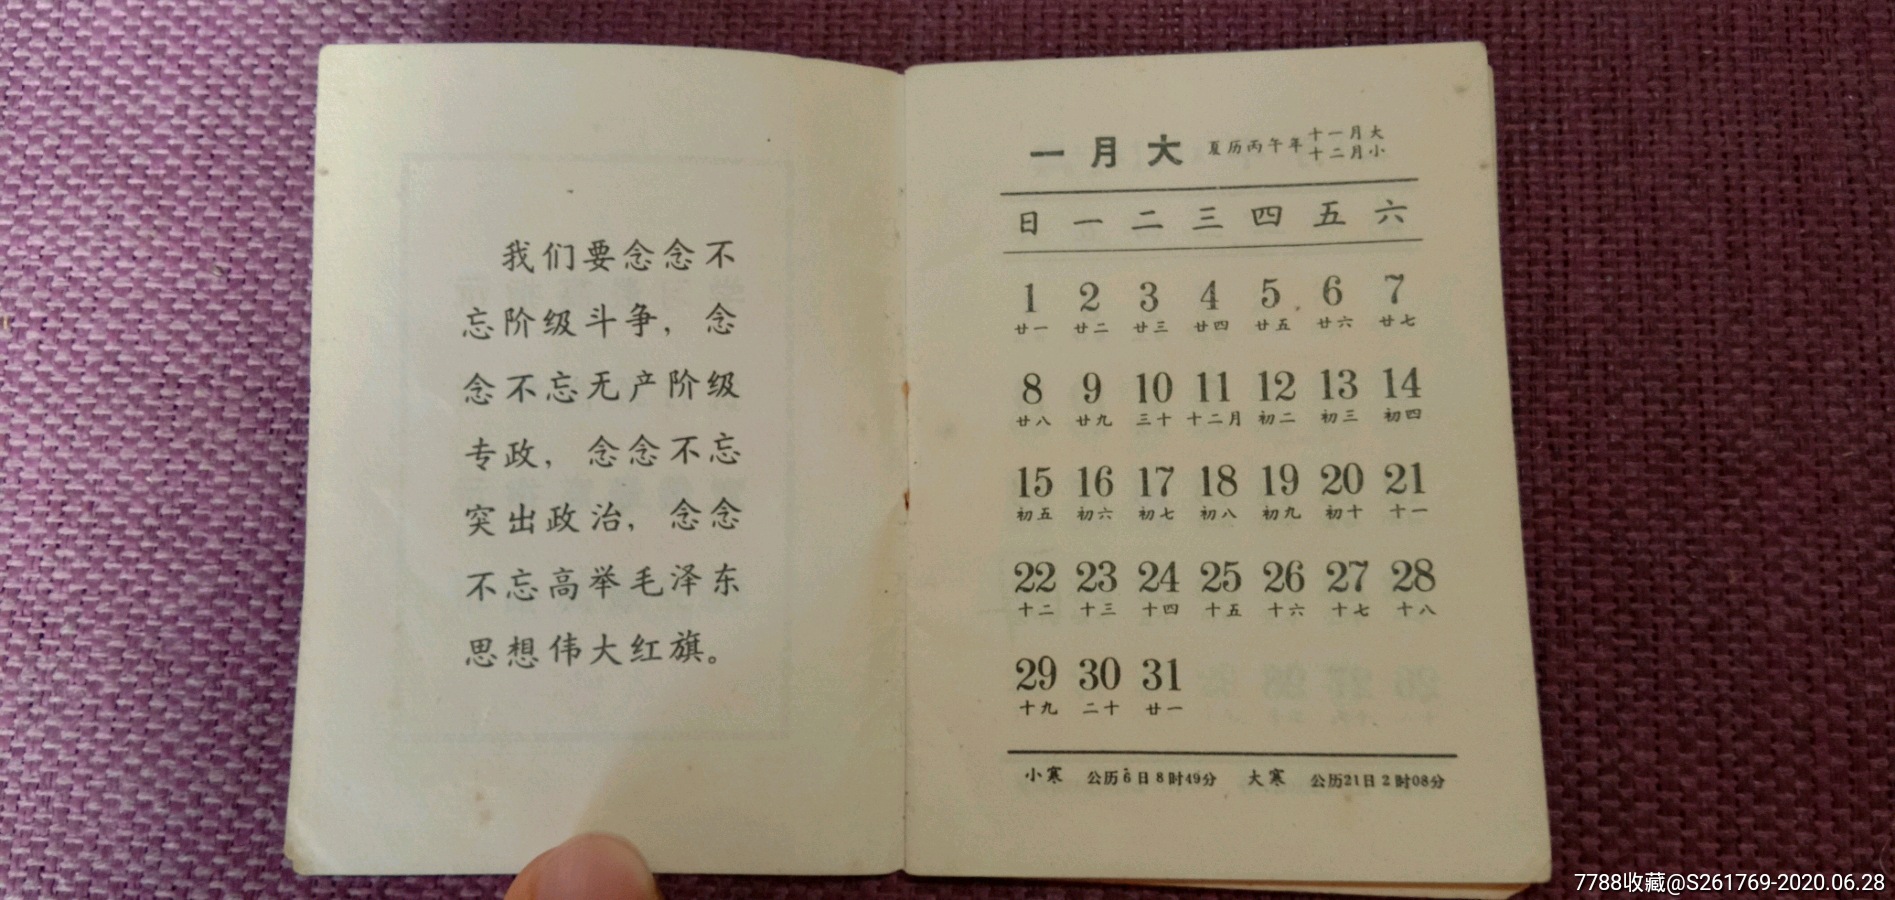 我们要念念不
忘阶级斗争，念
念不忘无产阶级
专政，念念不忘
突出政治，念念
不忘高举毛泽东
思想伟大红旗。
一月大 夏历丙午年 十一月大
十二月小
日 一 二 三 四 五 六
1 2 3 4 5 6 7
廿一 廿二 廿三 廿四 廿五 廿六 廿七
8 9 10 11 12 13 14
廿八 廿九 三十 十二月 初二 初三 初四
15 16 17 18 19 20 21
初五 初六 初七 初八 初九 初十 十一
22 23 24 25 26 27 28
十二 十三 十四 十五 十六 十七 十八
29 30 31
十九 二十 廿一
小寒 公历6日8时49分 大寒 公历21日2时08分
7788收藏@S261769-2020.06.28